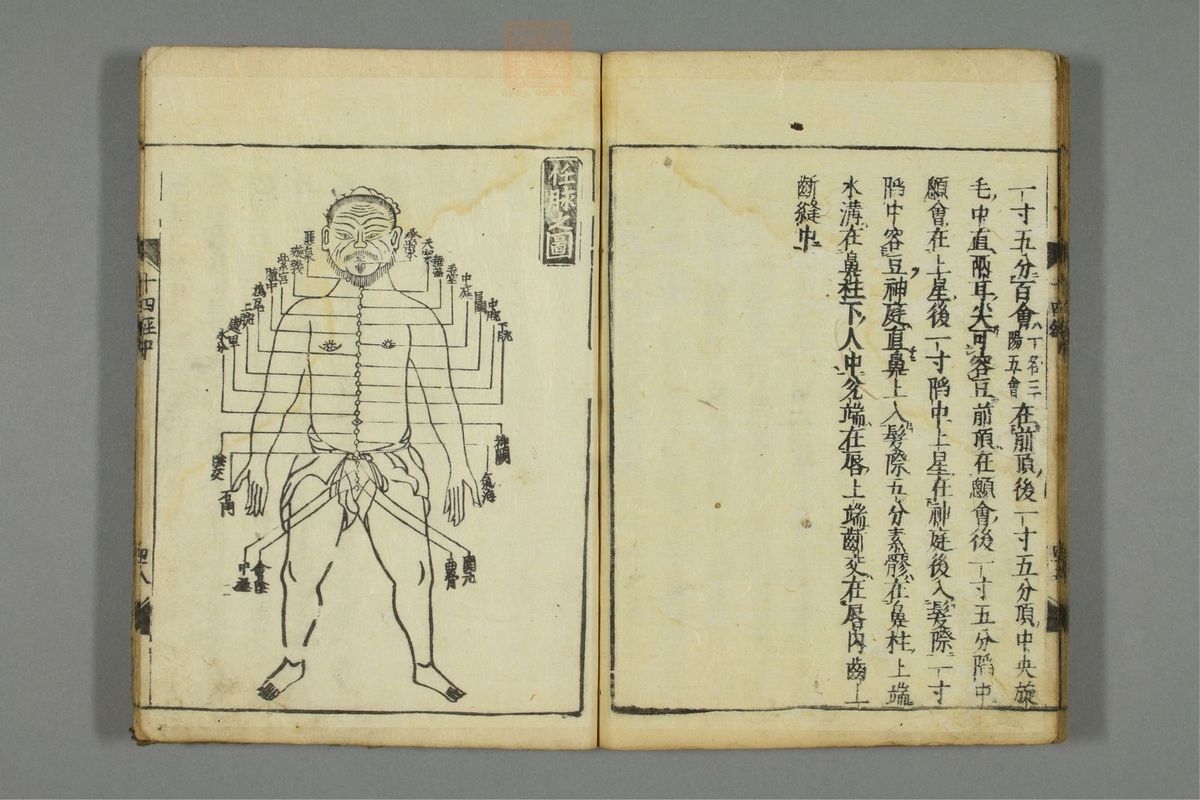 一寸五分百會一名三陽五會在前頂後一寸五分頂中央旋
毛中直兩耳尖可容豆前頂在顖會後一寸五分陷中
顖會在上星後一寸陷中上星在神庭後入髮際一寸
陷中容豆神庭直鼻上入髮際五分素髎在鼻柱上端
水溝在鼻柱下人中兌端在唇上端齗交在唇內齒上
齗縫中
任脉之圖
承漿
天突
華蓋
玉堂
中庭
巨闕
中脘
下脘
廉泉
璇璣
紫宮
膻中
鳩尾
上脘
建里
水分
神闕
氣海
陰交
石門
關元
曲骨
會陰
中極
十四經中